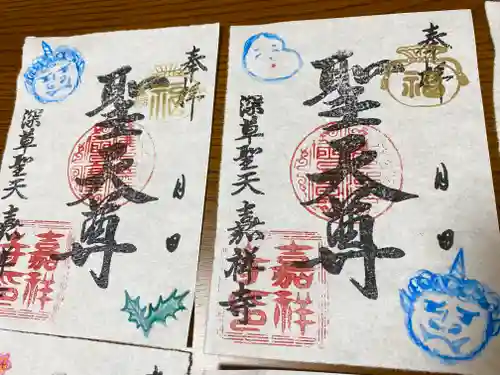 奉拝
福
月 日
聖天尊
深草聖天 嘉祥寺
嘉祥
寺印
奉拝
福
月 日
聖天尊
深草聖天 嘉祥寺
嘉祥
寺印